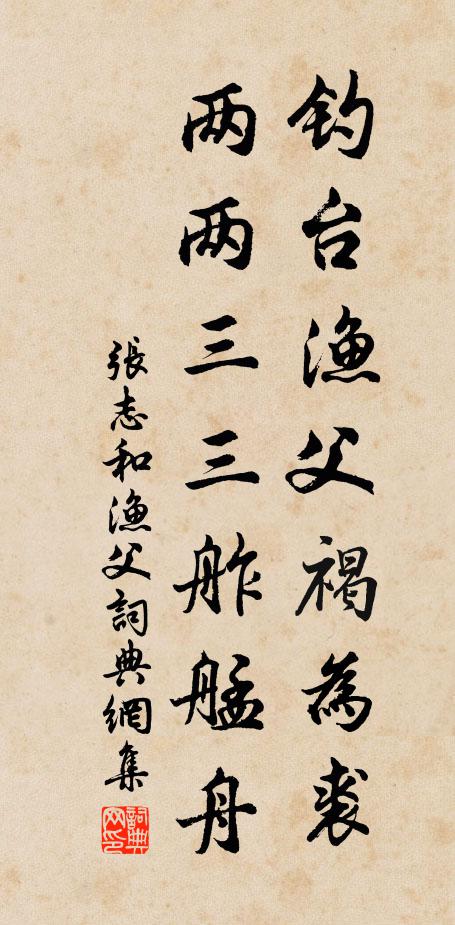 钓台渔父褐為裘
两两三三舴艋舟
張志和渔父詞典網集
詞典网印